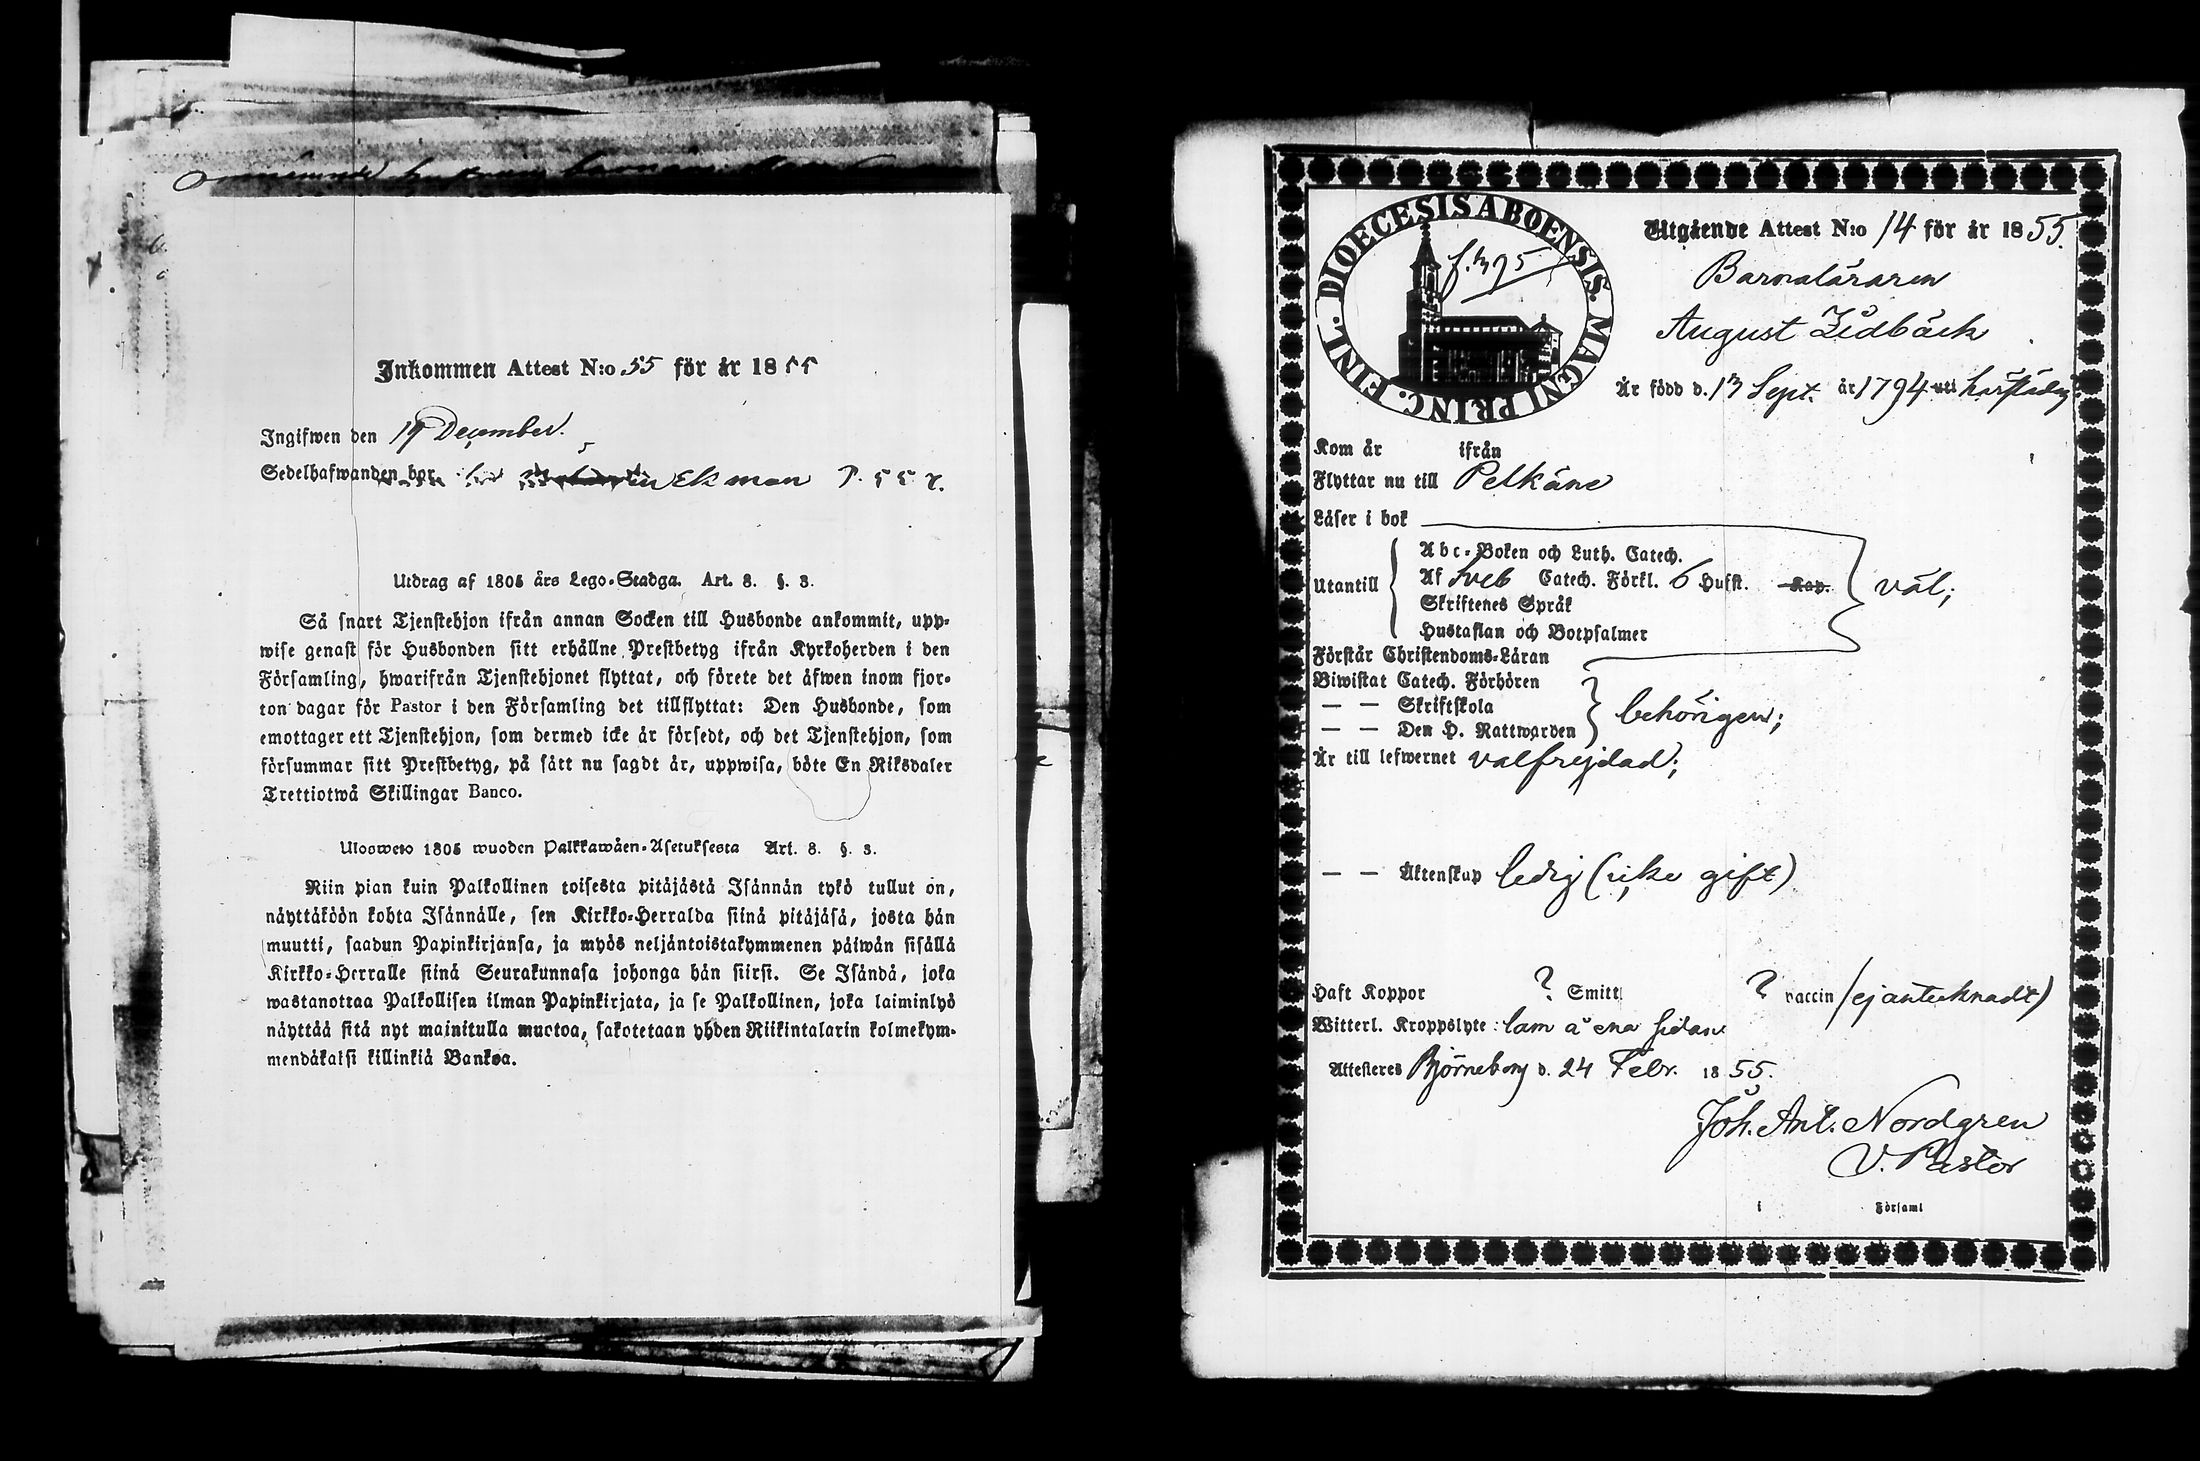 Inkommen Attest N:o 55 för år 1855
Ingifwen den 19 December.
Sedelhafwanden bor hos Ekman
Utdrag af 1805 års Lego-Stadga. Art. 8. §. 3.
Så snart Tjenstehjon ifrån annan Socken till Husbonde ankommit, upp-
wise genast för Husbonden sitt erhållne Prestbetyg ifrån Kyrkoherden i den
Församling, hwarifrån Tjenstehjonet flyttat, och förete det äfwen inom fjor-
ton dagar för Pastor i den Församling det tillflyttat: Den Husbonde, som
emottager ett Tjenstehjon, som dermed icke är försedt, och det Tjenstehjon, som
försummar sitt Prestbetyg, på sätt nu sagdt är, uppwisa, böte En Riksdaler
Trettiotwå Skillingar Banco.
Ulosweto 1805 wuoden Palkkawäen-Asetuksesta Art. 8. §. 3.
Niin pian kuin Palkollinen toisesta pitäjästä Isännän tykö tullut on,
näyttäköön kohta Isännälle, sen Kirkko-Herralda siinä pitäjäsä, josta hän
muutti, saadun Papinkirjansa, ja myös neljäntoistakymmenen päiwän sisällä
Kirkko-Herralle siinä Seurakunnasa johonga hän siirsi. Se Isändä, joka
wastanottaa Palkollisen ilman Papinkirjata, ja se Palkollinen, joka laiminlyö
näyttää sitä nyt mainitulla muotoa, sakotetaan yhden Riikintalarin kolmekym-
mendäkaksi killinkiä Bankoa.
DIOECESIS ABOENSIS. MAGNI PRINC. FINL.
Utgående Attest N:o 14 för år 1855.
Barnaläraren
August Zidbäck
Är född d. 13 Sept. år 1794 uti härstädes
Kom år ifrån
Flyttar nu till Pelkäne
Läser i bok
Utantill
Abc-Boken och Luth. Catech.
Af Sveb Catech. Förkl. 6 Hufst. Kap.
väl;
Skriftenes Språk
Hustaflan och Botpsalmer
Förstår Christendoms-Läran
Biwistat Catech. Förhören
— — Skriftskola
behörigen;
— — Den H. Nattwarden
Är till lefwernet välfrejdad;
— — Äktenskap ledig (icke gift)
Haft Koppor ? Smitt ? vaccin (ej antecknadt)
Witterl. Kroppslyte: lam å ena sidan
Attesteres Björneborg d. 24 Febr. 1855.
Joh. Ant. Nordgren
V. Pastor
i Församl